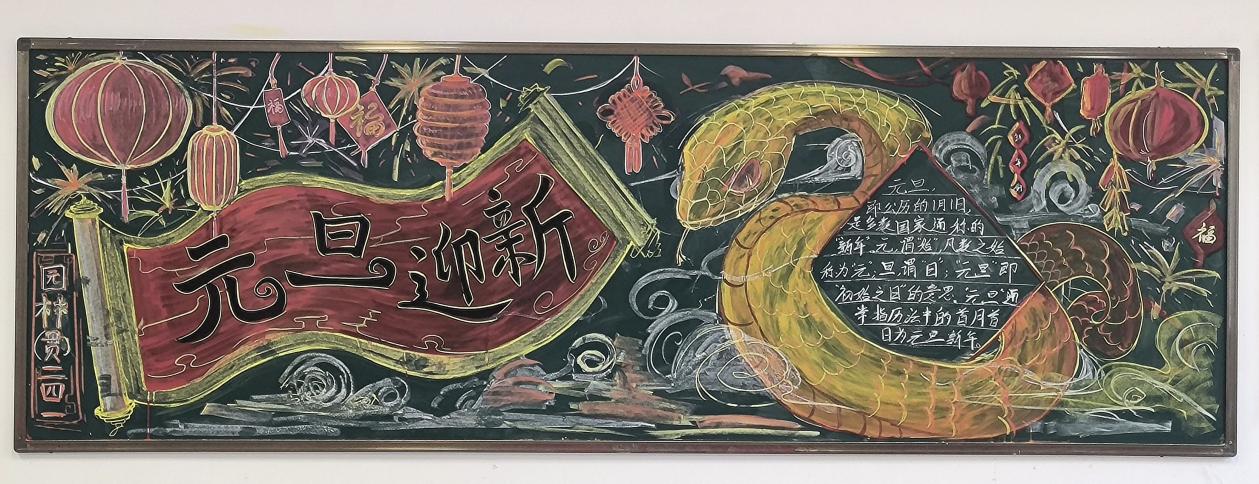 福
福
元旦迎新
园林贯二四一
元旦,
即公历的1月1日,
是多数国家通称的
"新年"。元,谓"始",凡数之始
称为"元";旦,谓"日";"元旦"即
"初始之日"的意思。"元旦"通
常指历法中的首月首
日为元旦新年。
福